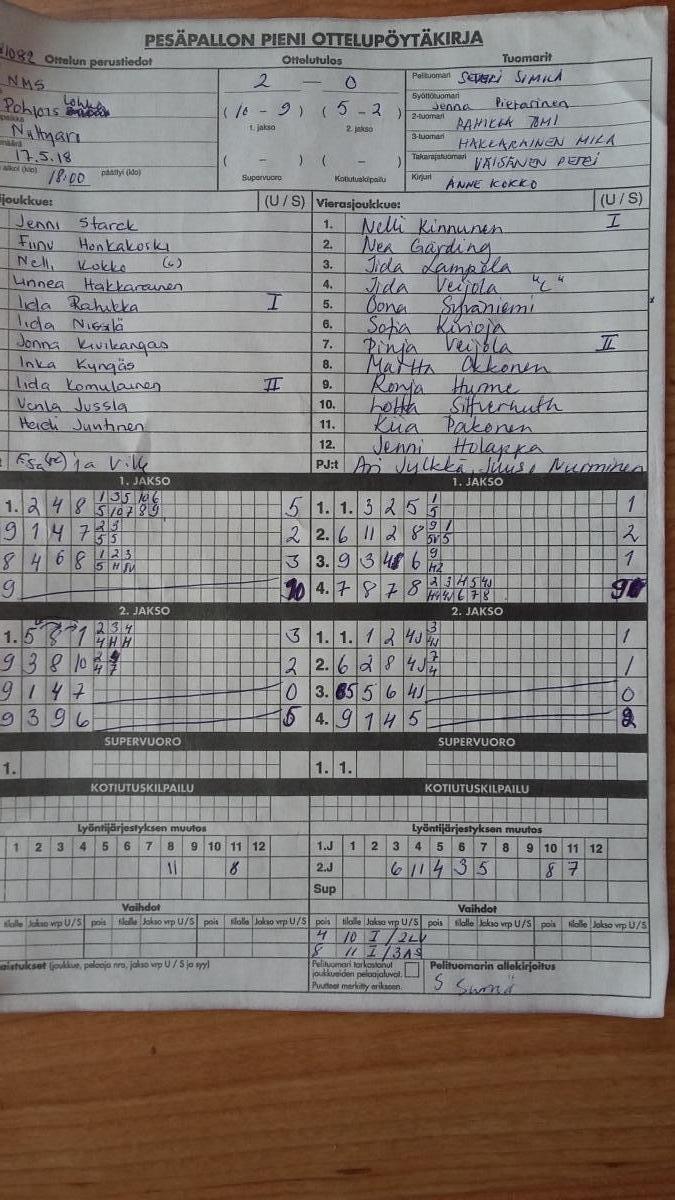 PESÄPALLON PIENI OTTELUPÖYTÄKIRJA
1082 Ottelun perustiedot Ottelutulos Tuomarit
NMS 2 — 0 Pelituomari SEVERI SIMILÄ
Pohjois (10 - 9) (5 - 2) Syöttötuomari Jenna Pietarinen
1. jakso 2. jakso 2-tuomari PAHIKKA TOMI
17.5.18 3-tuomari HAKKARAINEN MIKA
alkoi (klo) 18:00 päättyi (klo) ( - ) ( - ) Takarajatuomari VÄISÄNEN PETRI
Supervuoro Kotiutuskilpailu Kirjuri ANNE KOKKO
joukkue: (U / S) Vierasjoukkue: (U / S)
Jenni Starck 1. Nelli Kinnunen I
Honkakoski 2. Nea Garding
Nelli Kokko (c) 3. Iida Lampela
Linnea Hakkarainen 4. Iida Veijola "C"
Iida Rahikka I 5. Oona Syväniemi
Iida Nissilä 6. Sofia Kivioja
Jonna Kivikangas 7. Pinja Veijola II
Inka Kyngäs 8. Martta Okkonen
Iida Komulainen II 9. Ronja Hurme
Venla Jussila 10. Lotta
Heidi Juntinen 11. Kiia Pakonen
12. Jenni Holappa
ja Ville PJ:t Ari Jylkkä, Juuso Nurminen
1. JAKSO 1. JAKSO
1. 2 4 8 5 1. 1. 3 2 5 1
9 1 4 7 2 2. 6 11 2 8 2
8 4 6 8 3 3. 9 3 6 1
9 10 4. 7 8 7 8 9
2. JAKSO 2. JAKSO
1. 5 8 1 3 1. 1. 1 2 4J 1
9 3 8 10 2 2. 6 2 8 4J 1
9 1 4 7 0 3. 5 6 4J 0
9 3 9 6 5 4. 9 1 4 5 2
SUPERVUORO SUPERVUORO
1. 1. 1.
KOTIUTUSKILPAILU KOTIUTUSKILPAILU
Lyöntijärjestyksen muutos Lyöntijärjestyksen muutos
1 2 3 4 5 6 7 8 9 10 11 12 1.J 1 2 3 4 5 6 7 8 9 10 11 12
11 8 2.J 6 11 4 3 5 8 7
Sup
Vaihdot Vaihdot
tilalle Jakso vrp U/S pois tilalle Jakso vrp U/S pois tilalle Jakso vrp U/S pois tilalle Jakso vrp U/S pois tilalle Jakso vrp U/S pois tilalle Jakso vrp U/S
4 10 I / 2LV
8 11 I / 3AS
aistukset (joukkue, pelaaja nro, jakso vrp U / S ja syy) Pelituomari tarkastanut Pelituomarin allekirjoitus
joukkueiden pelaajaluvat.
Puutteet merkitty erikseen.